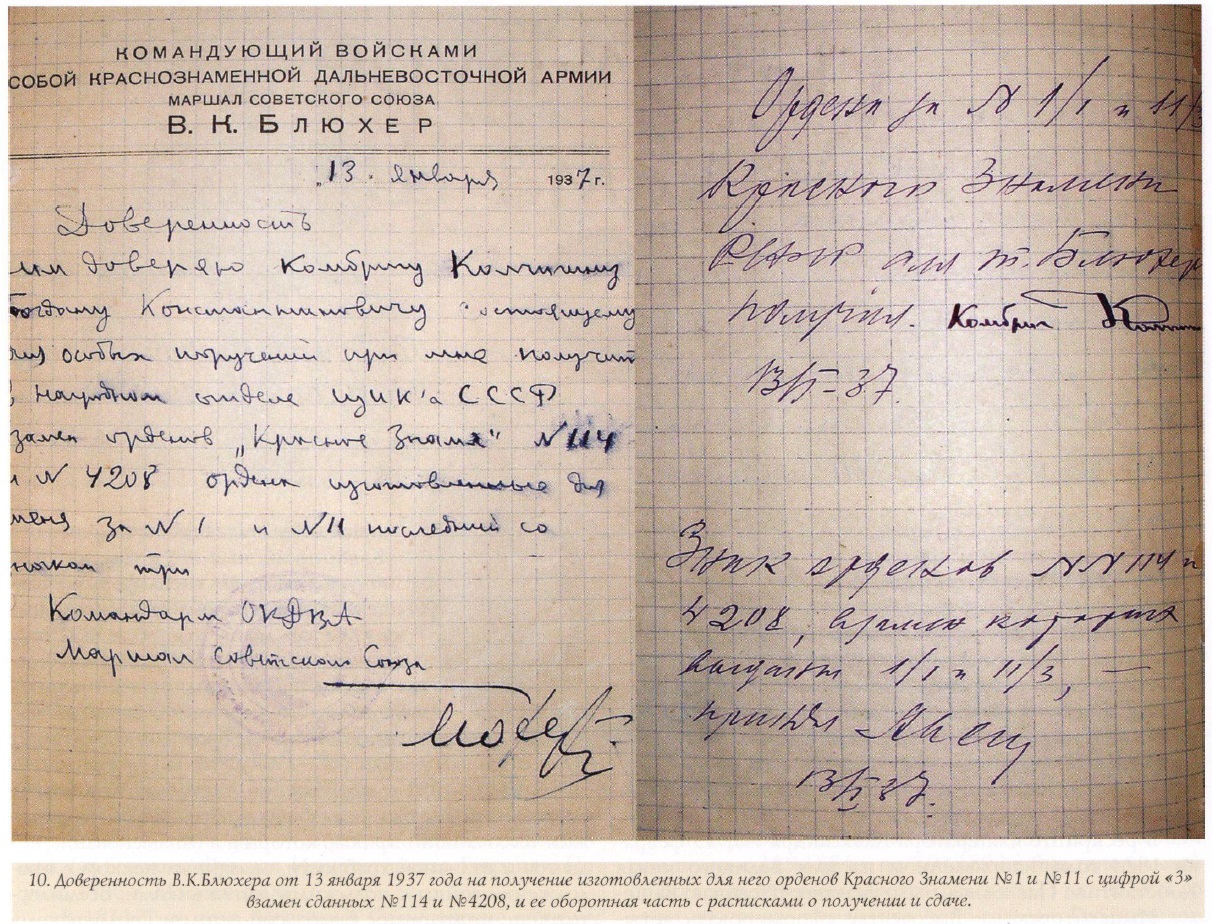 КОМАНДУЮЩИЙ ВОЙСКАМИ
СОБОЙ КРАСНОЗНАМЕННОЙ ДАЛЬНЕВОСТОЧНОЙ АРМИИ
МАРШАЛ СОВЕТСКОГО СОЮЗА
В. К. БЛЮХЕР
13. января 1937 г.
Доверенность
им доверяю Комбригу
Константиновичу состоящему
особых поручений при мне получит
наградном отделе ЦИК'а СССР
взамен орденов „Красное Знамя" N 114
и N 4208 ордена изготовленные для
меня за N 1 и N 11 последний со
значком три
Командарм ОКДВА
Маршал Советского Союза
Ордена за N 1/1 и 11/3
Красного Знамени
для т. Блюхер
получил. Комбриг
13/I-37.
Знак орденов NN 114 и
4208, взамен которых
выданы 1/1 и 11/3, —
принял
13/I 37.
10. Доверенность В.К.Блюхера от 13 января 1937 года на получение изготовленных для него орденов Красного Знамени №1 и №11 с цифрой «3»
взамен сданных №114 и №4208, и ее оборотная часть с расписками о получении и сдаче.